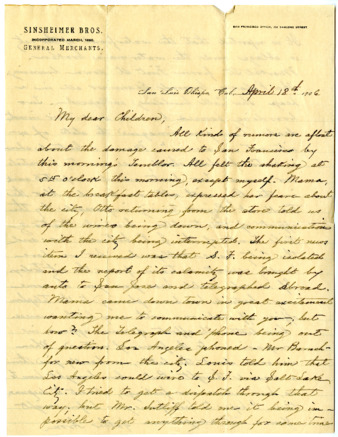 SINSHEIMER BROS.
INCORPORATED MARCH, 1898.
GENERAL MERCHANTS.
SAN FRANCISCO OFFICE, STREET
San Luis Obispo, Cal. April 18th 1906
My dear Children,
All kind of rumors are afloat
about the damage caused to San Francisco by
this morning's Temblor. All felt the shaking at
5 o'clock this morning, except myself. Mama,
at the breakfast table, expressed her fears about
the city, Otto returning from the store told us
of the wires being down, and communications
with the city being interrupted. The first news
item I received was that S. F. being isolated
and the report of its calamity was brought by
auto to San Jose and telegraphed abroad.
Mama came down town in great excitement
wanting me to communicate with you, but
how? The Telegraph and 'phone being out
of question. Los Angeles phoned
for news from the city, Louis told him that
Los Angeles could wire to S. F. via Salt Lake
City. I tried to get a dispatch through that
way, but Mr. Sutliff told me it being im-
possible to get anything through for some time